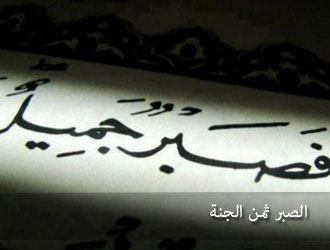 فَصَبْرٌ جَمِيلٌ
الصبر ثمن الجنة